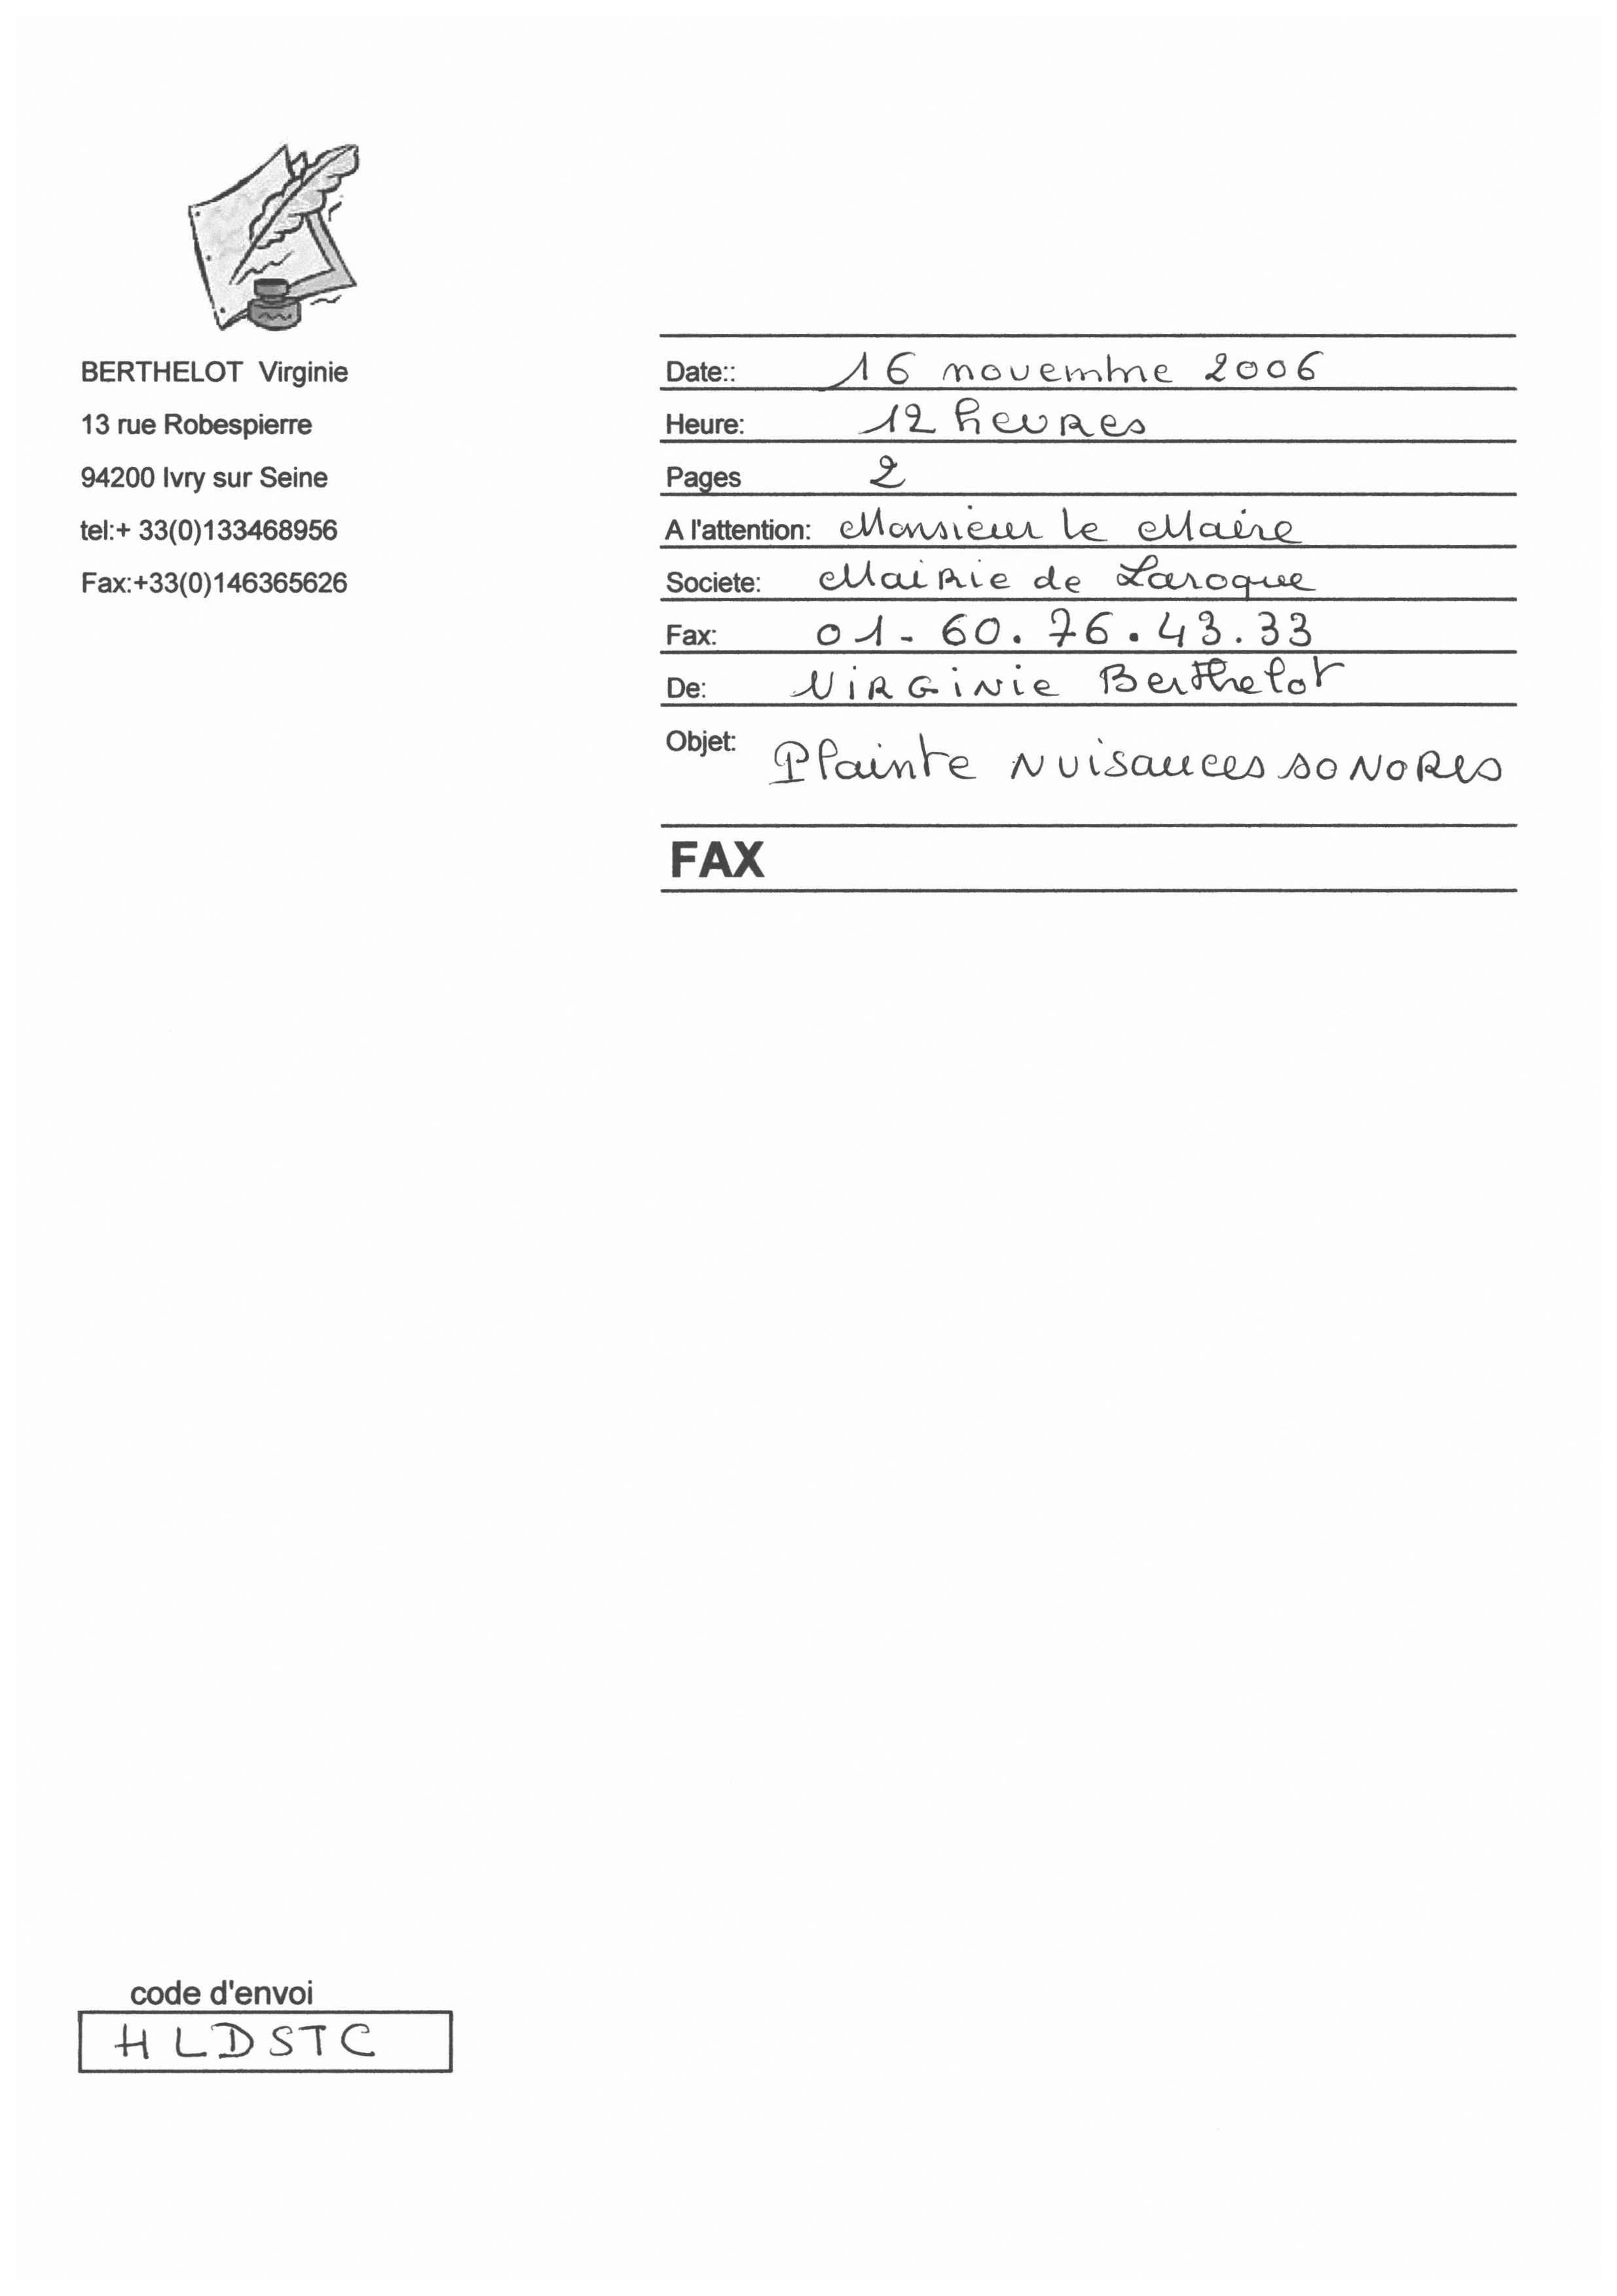 BERTHELOT Virginie
13 rue Robespierre
94200 Ivry sur Seine
tel:+ 33(0)133468956
Fax:+33(0)146365626
Date:: 16 novembre 2006
Heure: 12 heures
Pages 2
A l'attention: Monsieur le Maire
Societe: Mairie de Laroque
Fax: 01-60.76.43.33
De: Virginie Berthelot
Objet: Plainte Nuisances sonores
FAX
code d'envoi
HLDSTC